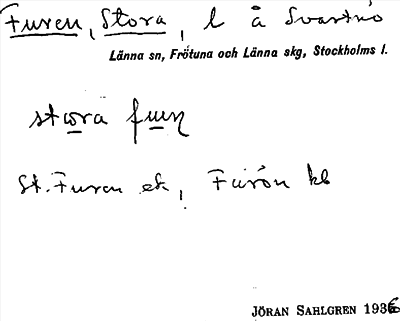 Furen, Stora, l å Svartnö
Länna sn, Frötuna och Länna skg, Stockholms l.
stora
St. Furen ek, Furön kb
JÖRAN SAHLGREN 1936